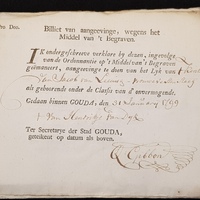 Pro Deo.
Billiet van aangeevinge, wegens het
Middel van 't Begraven.
IK ondergeschreve verklare by dezen, ingevolge
van de Ordonnantie op 't Middel van 't Begraven
geëmaneert, aangeevinge te doen van het Lyk van
van Jacob van
als gehoorende onder de Classis van d' onvermogende.
Gedaan binnen GOUDA, den 31 January 1799
Ter Secretarye der Stad GOUDA,
geteekent op datum als boven.